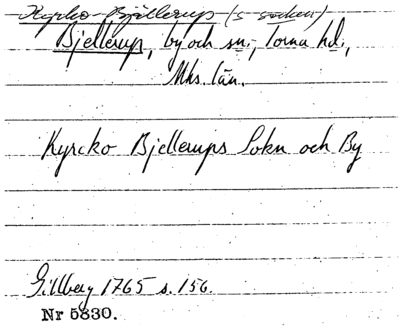 Kyrko-Bjällerup (s-socken)
Bjellerup, by och sn:, Torna hd:,
Mhs. län.
Kyrcko Bjellerups Sokn och By
Gillberg 1765 s. 156.
Nr 5830.